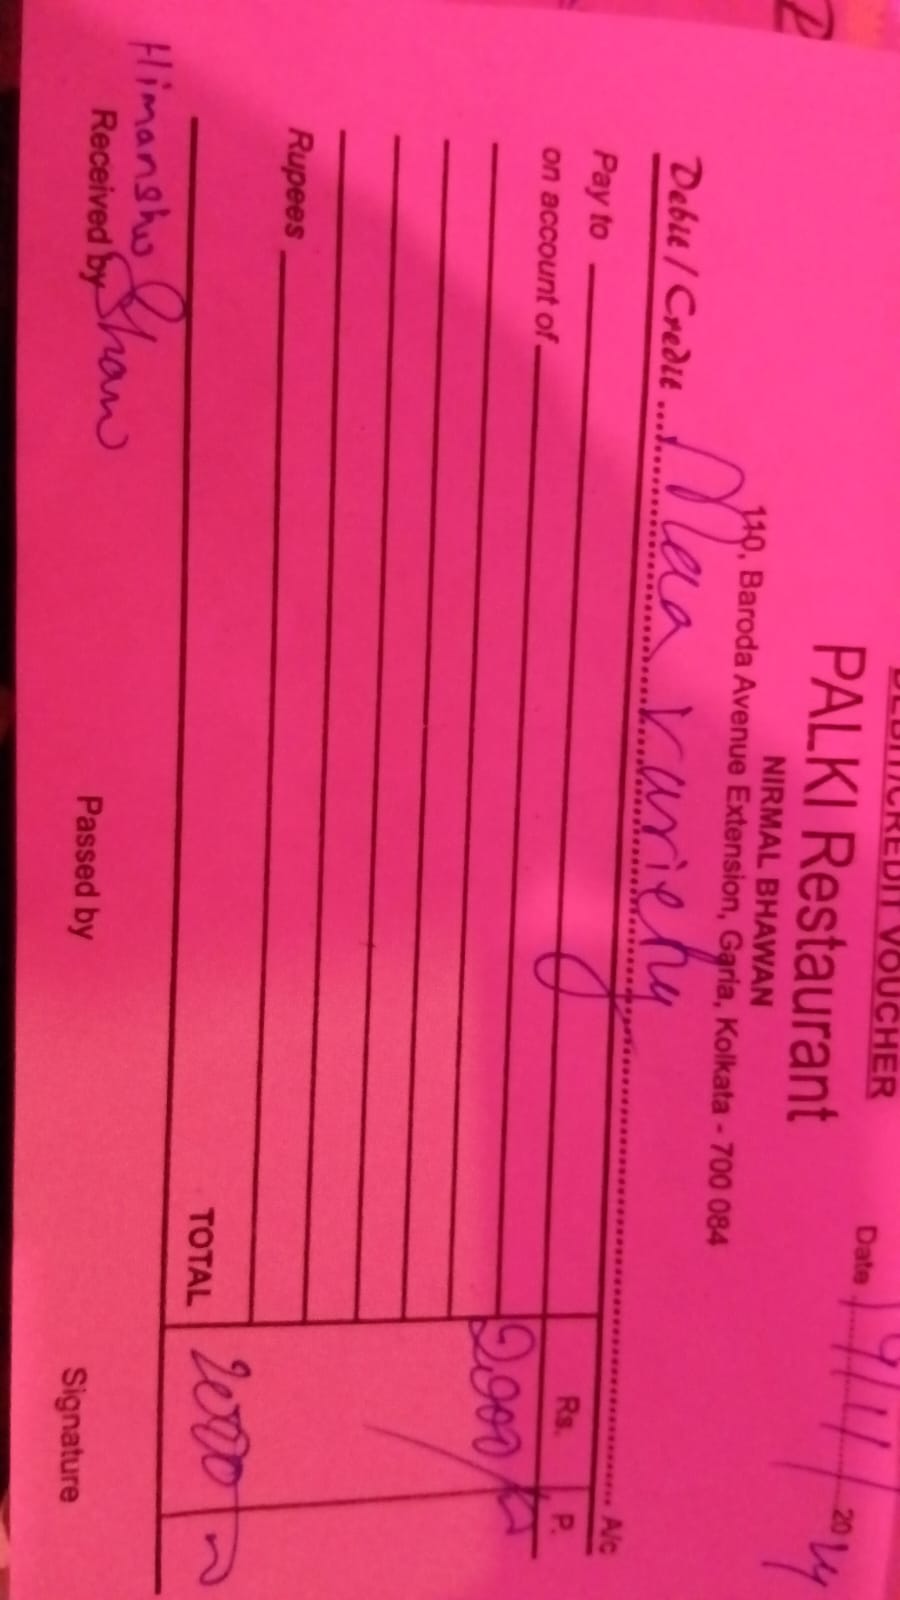 DEBIT/CREDIT VOUCHER
PALKI Restaurant
NIRMAL BHAWAN
110, Baroda Avenue Extension, Garia, Kolkata - 700 084
Date 19/11/ 2024
Debit / Credit Maa Variety A/c
Pay to Rs. P.
on account of 2000/-
Rupees
TOTAL 2000
Himanshu Shaw
Received by Passed by Signature